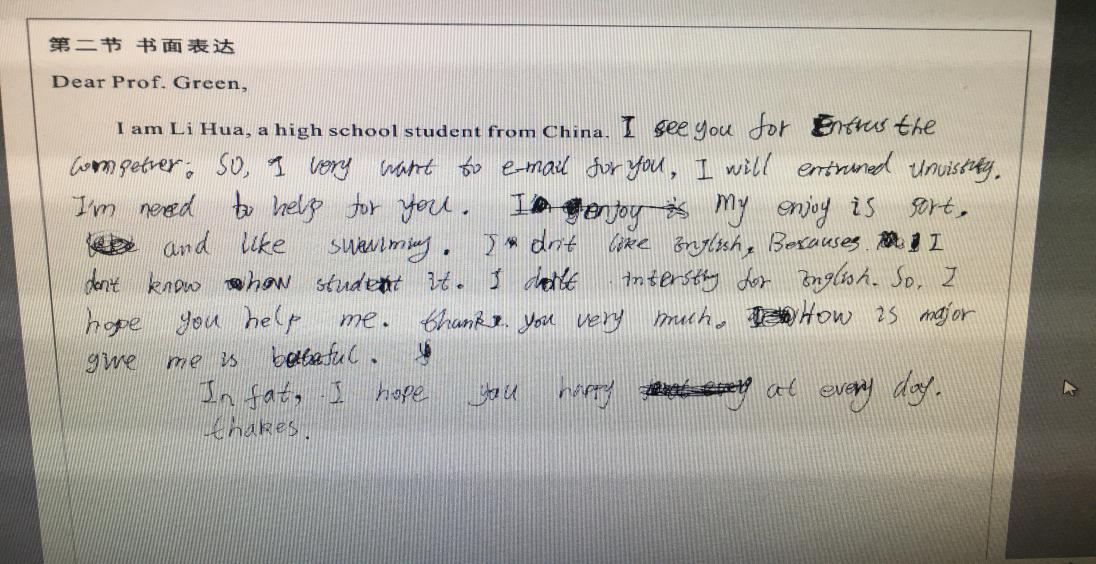 第二节 书面表达
Dear Prof. Green,
I am Li Hua, a high school student from China. I see you for the
So, I very want to e-mail for you, I will
I'm need to help for you. My enjoy is sort,
and like swimming. I don't like English, Becauses I
dont know how student it. I for English. So, I
hope you help me. thanks you very much. How is major
give me is
In fat, I hope you happy at every day.
thakes.